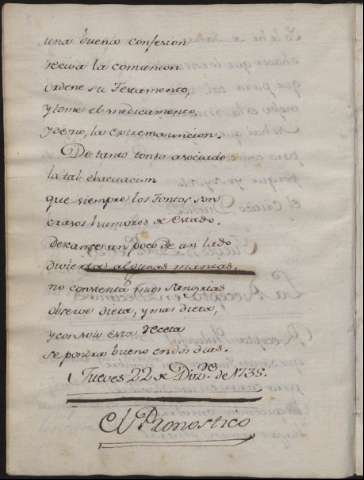 una buena confesion
reciva la comunion
ordene su Testamento,
y tome el medicamento,
y cene, la extremauncion.
De tanto tonto asociado
la tal evacuacion
que siempre los Tontos son
crasos humores de Estado.
descanse un poco de un lado
divierta algunas manias,
no consienta fuego Sangrias
observe dieta, y mas dieta,
y con sola esta receta
se pondra bueno en dos dias.
Jueves 22 de Diz.re de 1735.
El Pronostico